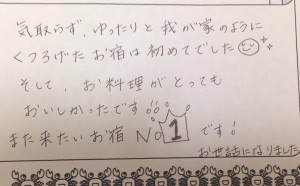 気取らず、ゆったりと我が家のように
くつろげたお宿は初めてでした
そして、お料理がとっても
おいしかったです!!
また来たいお宿 No 1 です!
お世話になりました